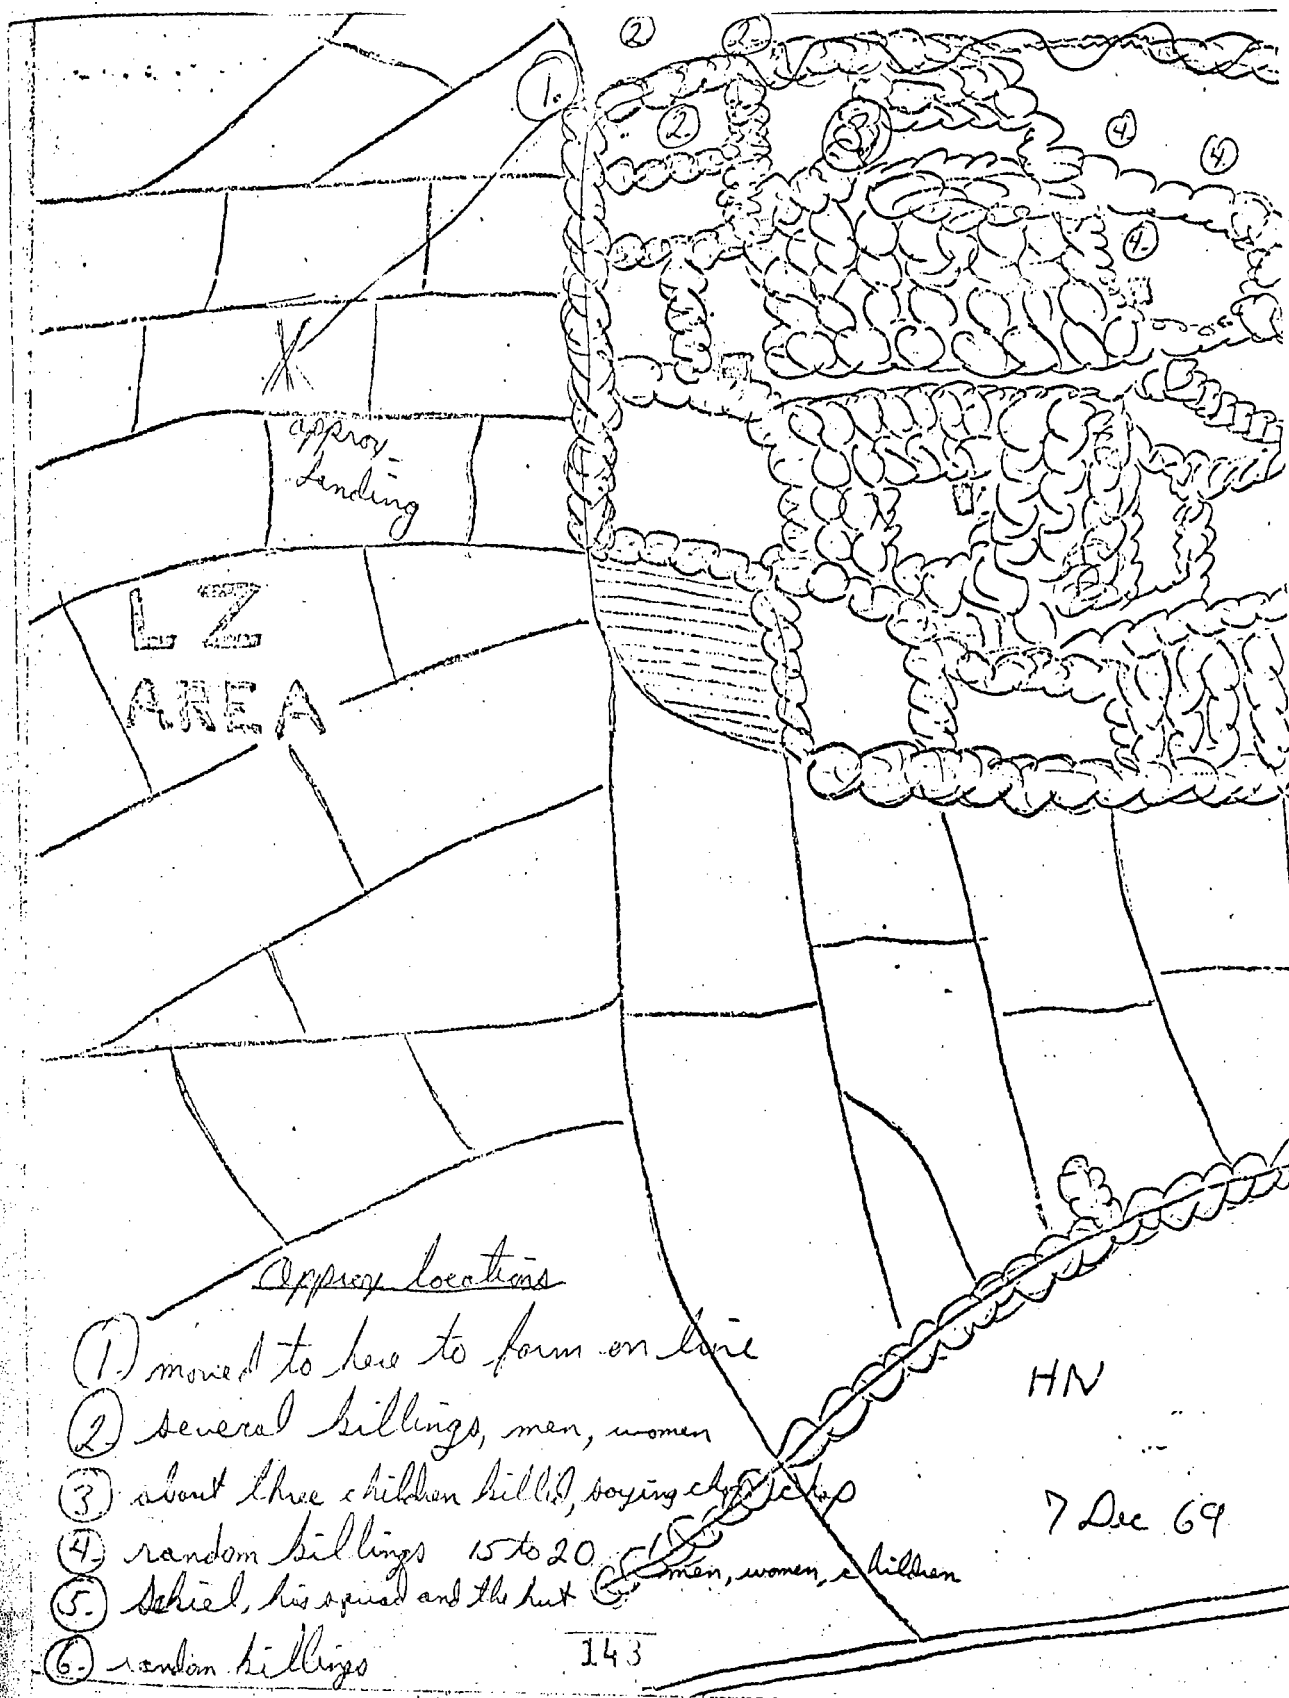 2
2.
1.
2.
3
4
4
4.
approx
landing
LZ
AREA
approx locations
1. moved to here to form on line
2. several killings, men, women
3 about three children killed, saying chop chop
4. random killings 15 to 20 men, women, children
5. Schiel, his squad and the hut
6. random killings
HN
7 Dec 69
143